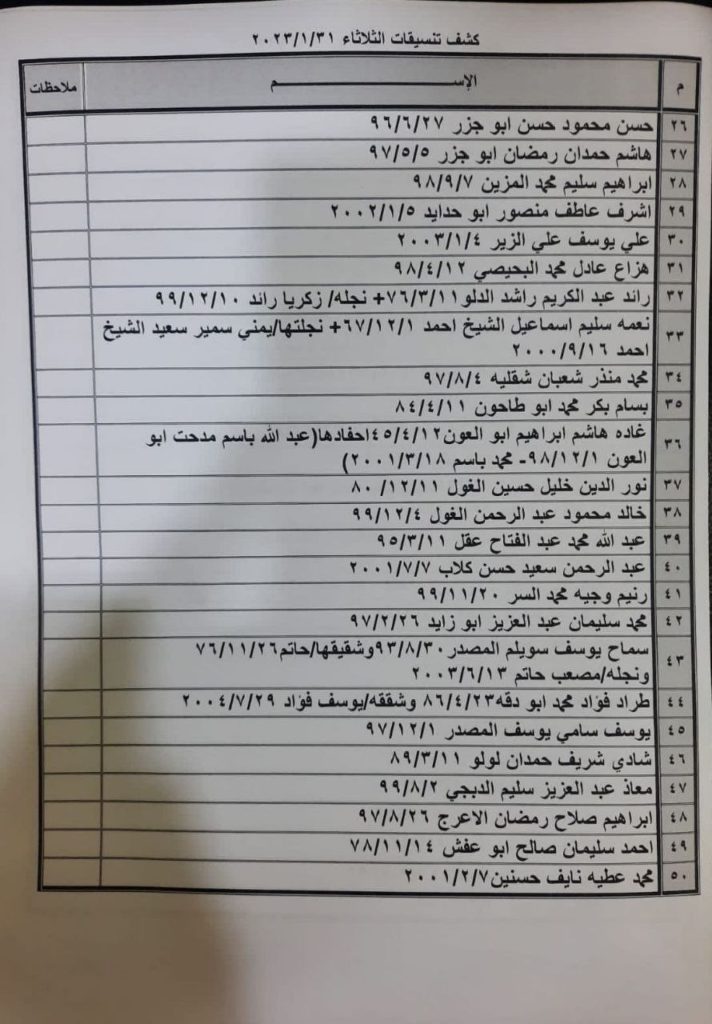 كشف تنسيقات الثلاثاء ٢٠٢٣/١/٣١
م الإســـــــــــــــــــم ملاحظات
٢٦ حسن محمود حسن ابو جزر ٩٦/٦/٢٧
٢٧ هاشم حمدان رمضان ابو جزر ٩٧/٥/٥
٢٨ ابراهيم سليم محمد المزين ٩٨/٩/٧
٢٩ اشرف عاطف منصور ابو حدايد ٢٠٠٢/١/٥
٣٠ علي يوسف علي الزير ٢٠٠٣/١/٤
٣١ هزاع عادل محمد البحيصي ٩٨/٤/١٢
٣٢ رائد عبد الكريم راشد الدلو ٧٦/٣/١١+ نجله/ زكريا رائد ٩٩/١٢/١٠
٣٣ نعمه سليم اسماعيل الشيخ احمد ٦٧/١٢/١+ نجلتها/يمني سمير سعيد الشيخ
احمد ٢٠٠٠/٩/١٦
٣٤ محمد منذر شعبان شقليه ٩٧/٨/٤
٣٥ بسام بكر محمد ابو طاحون ٨٤/٤/١١
٣٦ غاده هاشم ابراهيم ابو العون٤٥/٤/١٢احفادها(عبد الله باسم مدحت ابو
العون ٩٨/١٢/١- محمد باسم ٢٠٠١/٣/١٨)
٣٧ نور الدين خليل حسين الغول ٨٠/١٢/١١
٣٨ خالد محمود عبد الرحمن الغول ٩٩/١٢/٤
٣٩ عبد الله محمد عبد الفتاح عقل ٩٥/٣/١١
٤٠ عبد الرحمن سعيد حسن كلاب ٢٠٠١/٧/٧
٤١ رنيم وجيه محمد السر ٩٩/١١/٢٠
٤٢ محمد سليمان عبد العزيز ابو زايد ٩٧/٢/٢٦
٤٣ سماح يوسف سويلم المصدر ٩٣/٨/٣٠وشقيقها/حاتم٧٦/١١/٢٦
ونجله/مصعب حاتم ٢٠٠٣/٦/١٣
٤٤ طراد فؤاد محمد ابو دقه٨٦/٤/٢٣ وشققه/يوسف فؤاد ٢٠٠٤/٧/٢٩
٤٥ يوسف سامي يوسف المصدر ٩٧/١٢/١
٤٦ شادي شريف حمدان لولو ٨٩/٣/١١
٤٧ معاذ عبد العزيز سليم الدبجي ٩٩/٨/٢
٤٨ ابراهيم صلاح رمضان الاعرج ٩٧/٨/٢٦
٤٩ احمد سليمان صالح ابو عفش ٧٨/١١/١٤
٥٠ محمد عطيه نايف حسنين٢٠٠١/٢/٧